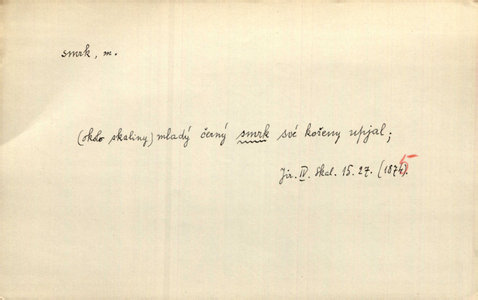 smrk, m.
(okolo skaliny) mladý černý smrk své kořeny upjal;
Jir. IV. Skal. 15. 27. (1875).